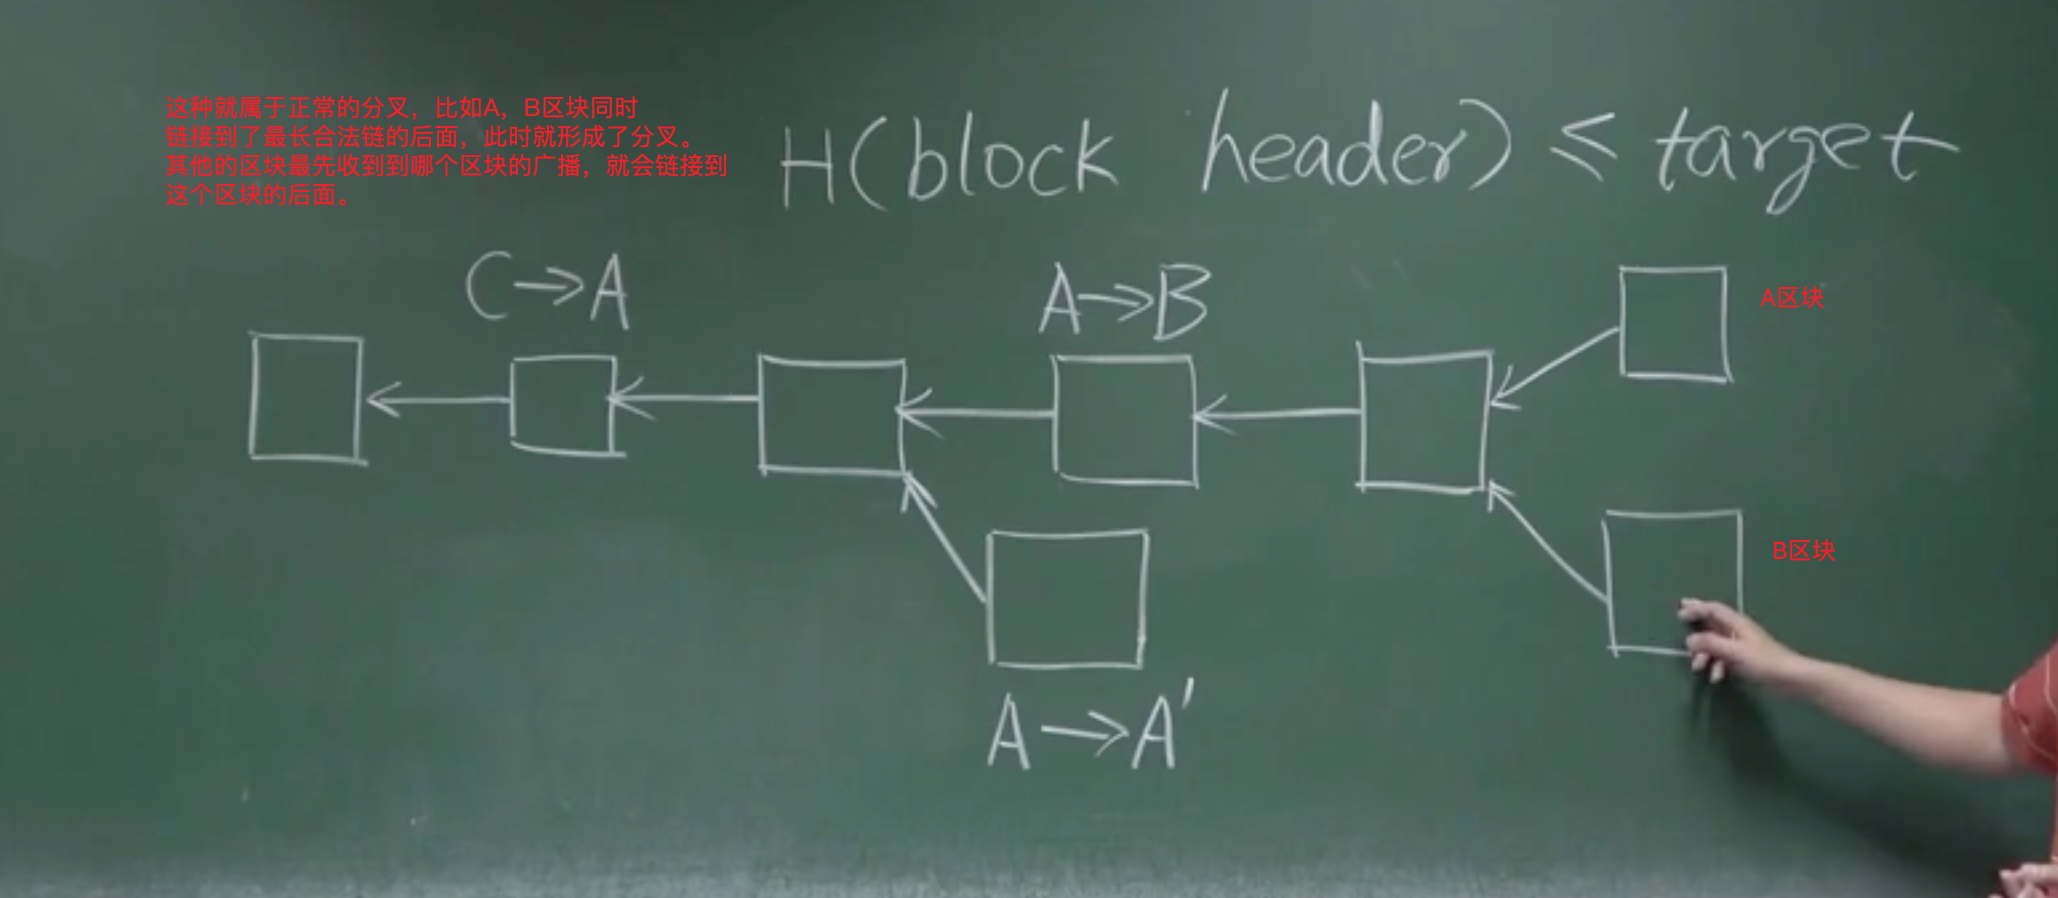 这种就属于正常的分叉，比如A，B区块同时
链接到了最长合法链的后面，此时就形成了分叉。
其他的区块最先收到到哪个区块的广播，就会链接到
这个区块的后面。
H(block header) ≤ target
C→A
A→B
A区块
B区块
A→A'